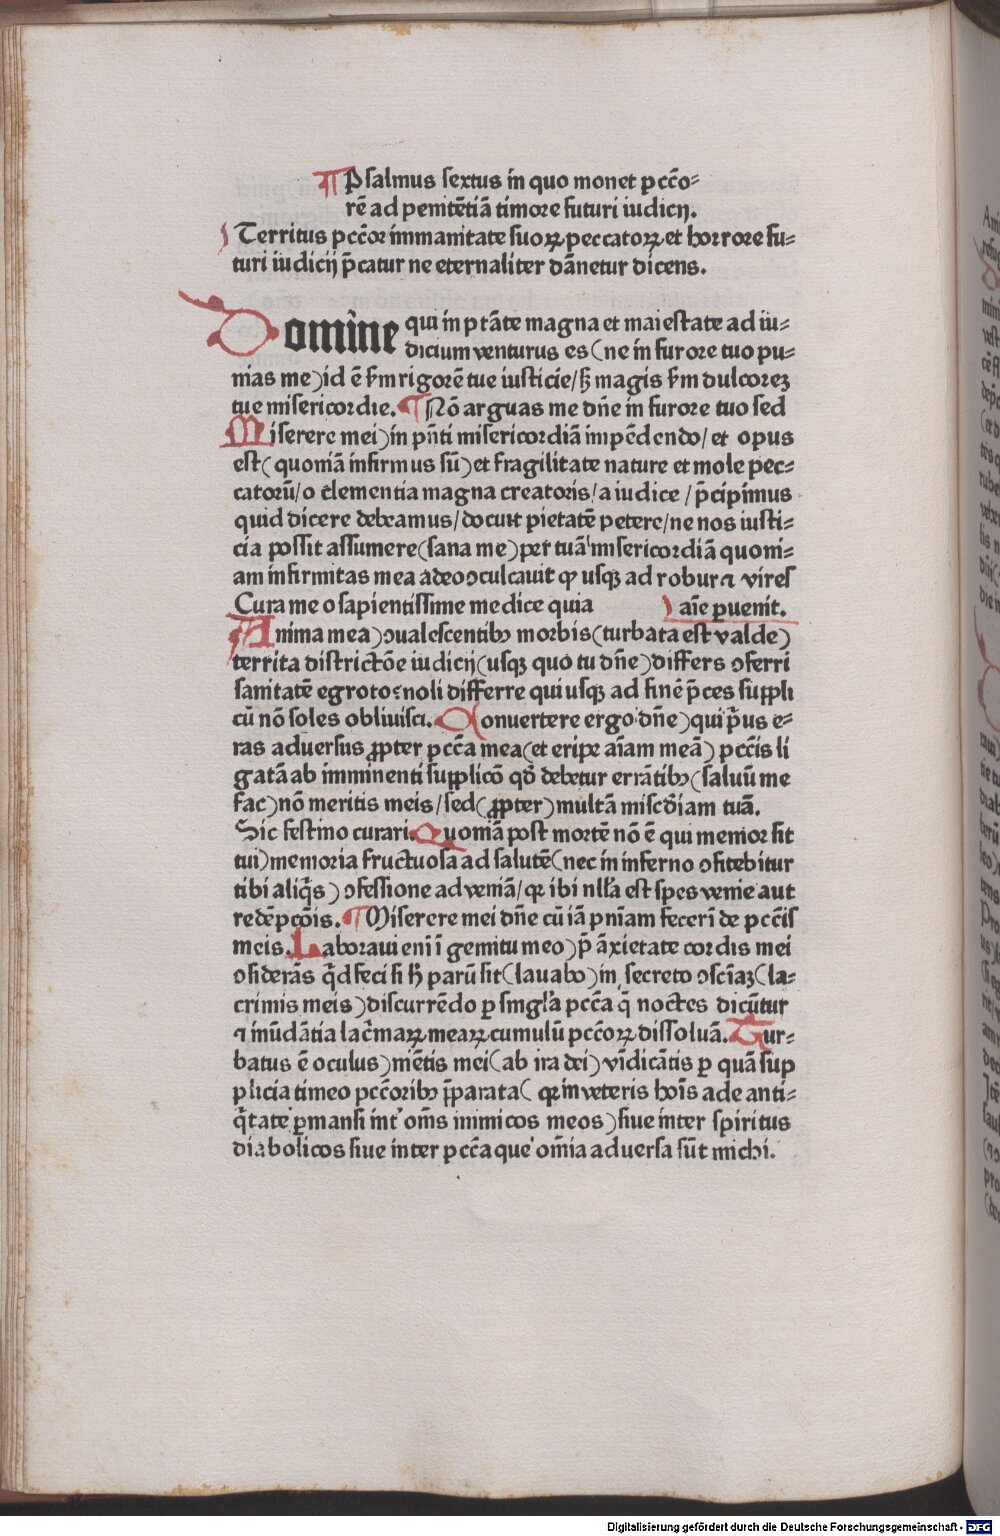 ¶ Psalmus sextus in quo monet pcc̄o⸗
rē ad penitētiā timore futuri iudicij.
Territus pcc̄or immanitate suoꝝ peccatoꝝ et horrore fu⸗
turi iudicij p̄catur ne eternaliter dānetur dicens.
Domine qui in ptāte magna et maiestate ad iu⸗
dicium venturus es(ne in furore tuo pu⸗
nias me)id ē s̄m rigorē tue iusticie/sꝫ magis s̄m dulcoreꝫ
tue misericordie. ¶ Nō arguas me dn̄e in furore tuo sed
Miserere mei)in pn̄ti misericordiā impēdendo/et opus
est(quoniā infirmus sū)et fragilitate nature et mole pec⸗
catorū/o clementia magna creatoris/a iudice/p̄cipimus
quid dicere debeamus/docuit pietatē petere/ne nos iusti⸗
cia possit assumere(sana me)per tuā misericordiā quoni⸗
am infirmitas mea adeo ↄculcauit ꝙ usqꝫ ad robur ⁊ vires
Cura me o sapientissime medice quia ) aīe ꝑuenit.
Anima mea)ↄualescentibꝰ morbis(turbata est valde)
territa districtōe iudicij(usqꝫ quo tu dn̄e)differs ↄferri
sanitatē egroto:noli differre qui usqꝫ ad finē p̄ces suppli
cū nō soles oblivisci. Convertere ergo dn̄e)qui p̄us e⸗
ras adversus ꝓpter pcc̄a mea(et eripe aīam meā) pcc̄is li
gatā ab imminenti supplicō qd̄ debetur errātibꝰ(saluū me
fac)nō meritis meis/sed(ꝓpter)multā misc̄diam tuā.
Sic festino curari. Quoniā post mortē nō ē qui memor sit
tui)memoria fructuosa ad salutē(nec in inferno ↄfitebitur
tibi aliq̄s)ↄfessione ad veniā/qꝛ ibi nll̄a est spes venie aut
redēpcōis. ¶ Miserere mei dn̄e cū iā pn̄iam fecerī de pcc̄is
meis. Laboravi enī ī gemitu meo)p̄ āxietate cordis mei
ↄsiderās q̄d feci si hꝫ parū sit(lavabo)in secreto ↄsciaꝫ(la⸗
crimis meis)discurrēdo ꝑ singl̄a pcc̄a q̄ noctes dicūtur
⁊ inūdātia lac̄maꝝ meaꝝ cumulū pcc̄oꝝ dissoluā. Tur⸗
batus ē oculus)mētis mei(ab ira dei)vīdicātis ꝑ quā sup
plicia timeo pcc̄oribꝰ p̄parata(qꝛ inveteris hoīs ade anti⸗
q̄tate ꝑmansi int̛ om̄s inimicos meos)siue inter spiritus
diabolicos siue inter pcc̄a que om̄ia adversa sūt michi.
Digitalisierung gefördert durch die Deutsche Forschungsgemeinschaft - DFG